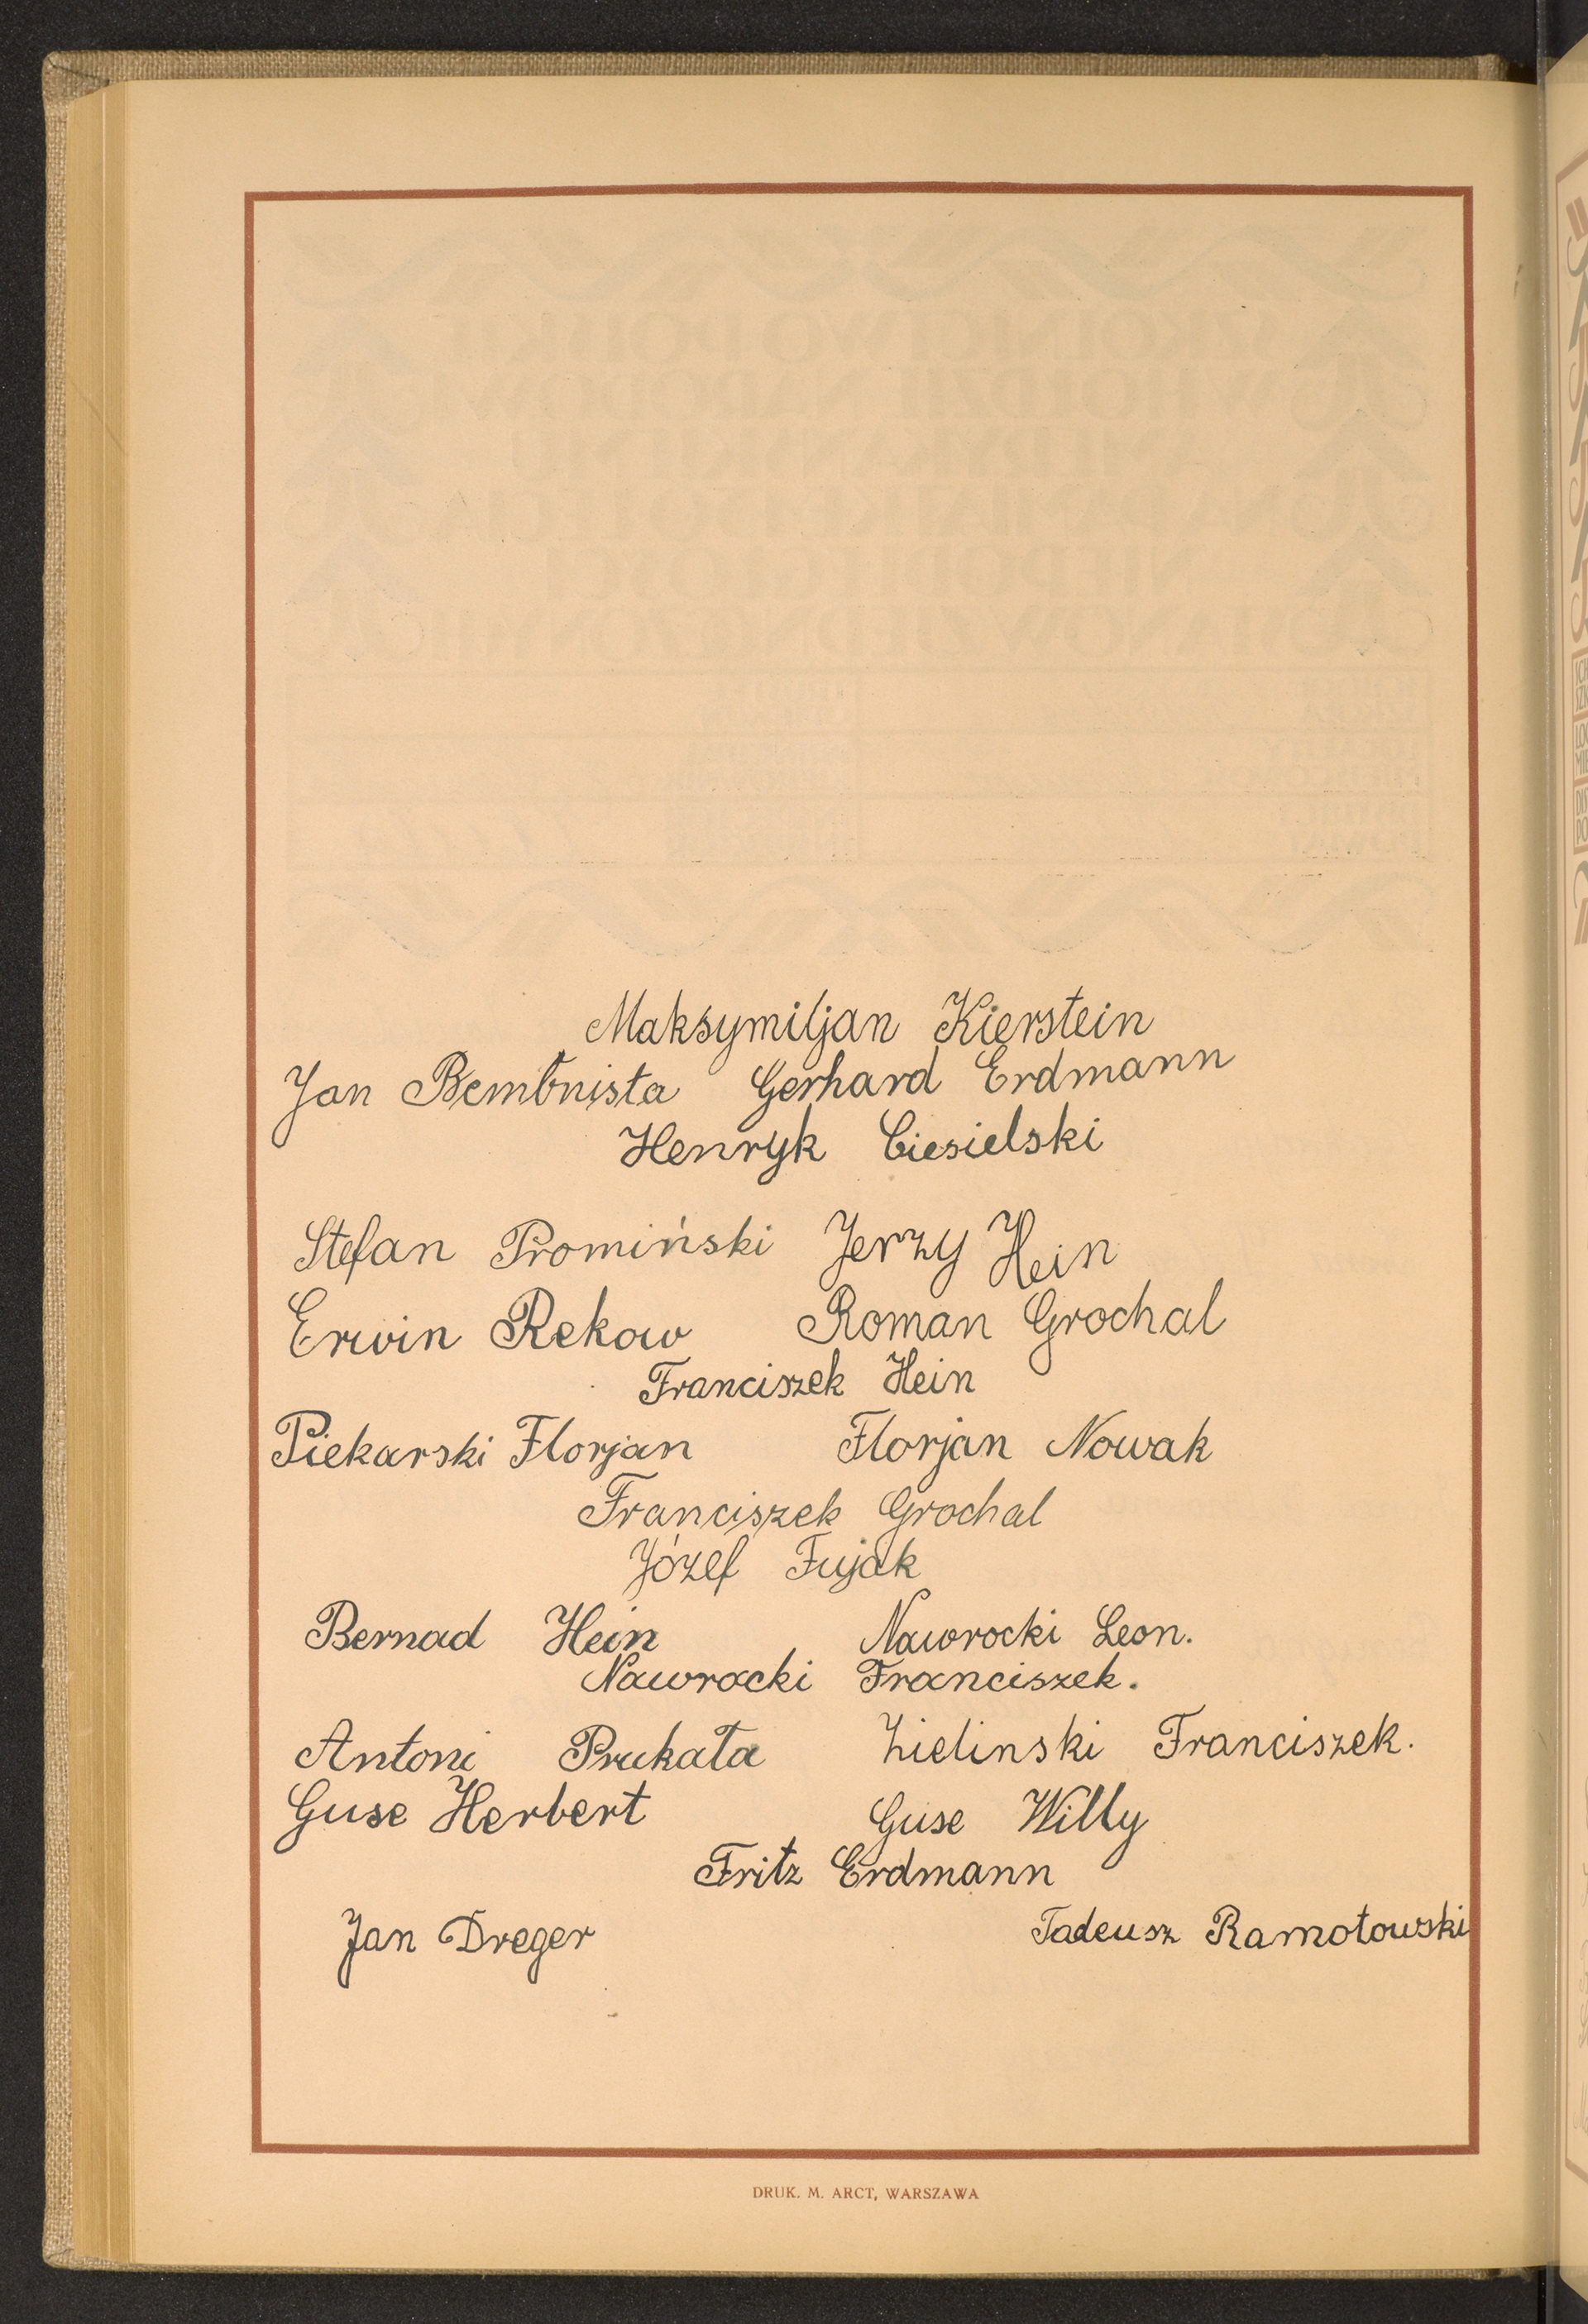 Maksymiljan Kierstein
Jan Bembnista Gerhard Erdmann
Henryk Ciesielski
Stefan Promiński Jerzy Hein
Erwin Rekow Roman Grochal
Franciszek Hein
Piekarski Florjan Florjan Nowak
Franciszek Grochal
Józef Fujak
Bernad Hein Nawrocki Leon.
Nawrocki Franciszek.
Antoni Prukała Zielinski Franciszek.
Guse Herbert Guse Willy
Fritz Erdmann
Jan Dreger Tadeusz Ramotowski
DRUK. M. ARCT, WARSZAWA